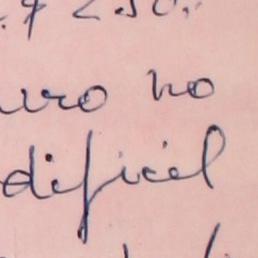 $ 250.
uro no
dificil